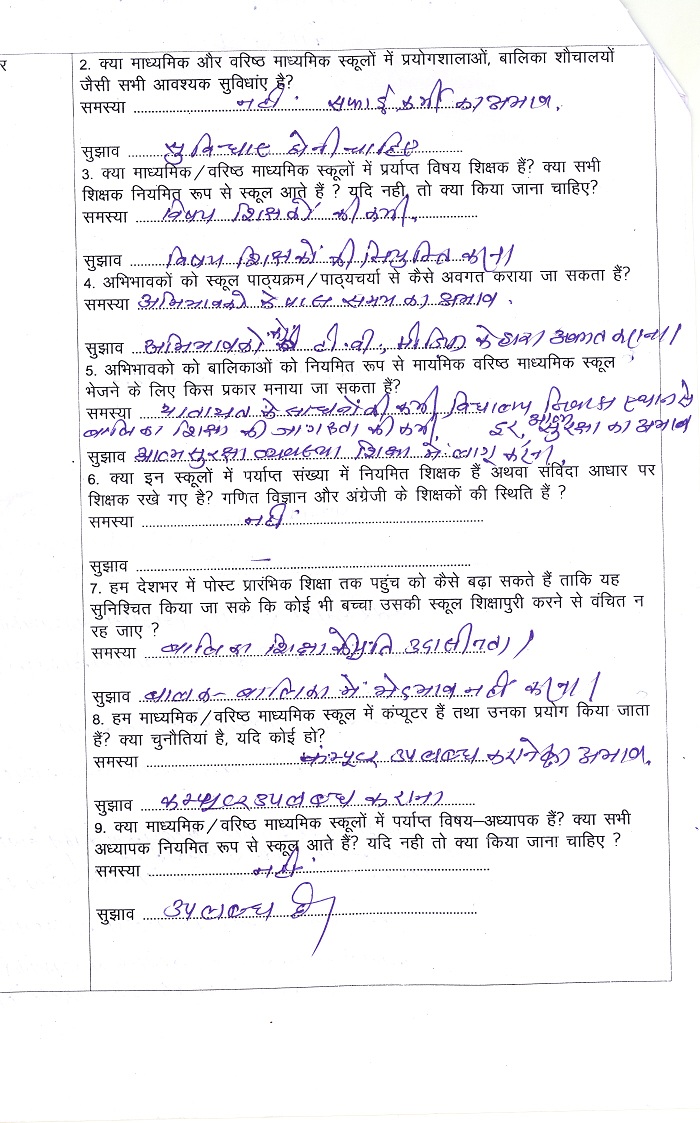 र
2. क्या माध्यमिक और वरिष्ठ माध्यमिक स्कूलों में प्रयोगशालाओं, बालिका शौचालयों
जैसी सभी आवश्यक सुविधांए है?
समस्या ..... नही . सफाई कर्मी का अभाव .
सुझाव ..... होनी चाहिए
3. क्या माध्यमिक/वरिष्ठ माध्यमिक स्कूलों में प्रर्याप्त विषय शिक्षक हैं? क्या सभी
शिक्षक नियमित रूप से स्कूल आते हैं ? यदि नही, तो क्या किया जाना चाहिए?
समस्या ..... विषय शिक्षकों की कमी .....
सुझाव ..... विषय शिक्षकों की नियुक्ति करना
4. अभिभावकों को स्कूल पाठ्यक्रम/पाठ्यचर्या से कैसे अवगत कराया जा सकता हैं?
समस्या अभिभावको के पास समय का अभाव .
सुझाव ... अभिभावको को टी.वी., मीडिया के द्वारा अवगत कराना।
5. अभिभावको को बालिकाओं को नियमित रूप से मायमिक वरिष्ठ माध्यमिक स्कूल
भेजने के लिए किस प्रकार मनाया जा सकता हैं?
समस्या .... यातायत के साधनों की कमी विधालय निवास स्थान से
बालिका शिक्षा की जागरुता की कमी, दूर, आत्म सुरक्षा का अभाव
सुझाव आत्म सुरक्षा व्यवस्था शिक्षा में लागू करना,
6. क्या इन स्कूलों में पर्याप्त संख्या में नियमित शिक्षक हैं अथवा संविदा आधार पर
शिक्षक रखे गए है? गणित विज्ञान और अंग्रेजी के शिक्षकों की स्थिति हैं ?
समस्या ..... नही .....
सुझाव ..... –
7. हम देशभर में पोस्ट प्रारंभिक शिक्षा तक पहुंच को कैसे बढ़ा सकते हैं ताकि यह
सुनिश्चित किया जा सके कि कोई भी बच्चा उसकी स्कूल शिक्षापुरी करने से वंचित न
रह जाए ?
समस्या ... बालिका शिक्षा के प्रति उदासीनता।
सुझाव बालक - बालिका में भेदभाव नहीं करना।
8. हम माध्यमिक/वरिष्ठ माध्यमिक स्कूल में कंप्यूटर हैं तथा उनका प्रयोग किया जाता
हैं? क्या चुनौतियां है, यदि कोई हो?
समस्या ..... कम्प्यूटर उपलब्ध कराने का अभाव.
सुझाव ... कम्प्यूटर उपलब्ध कराना
9. क्या माध्यमिक/वरिष्ठ माध्यमिक स्कूलों में पर्याप्त विषय–अध्यापक हैं? क्या सभी
अध्यापक नियमित रूप से स्कूल आते हैं? यदि नही तो क्या किया जाना चाहिए ?
समस्या ..... नही .....
सुझाव ... उपलब्ध हो